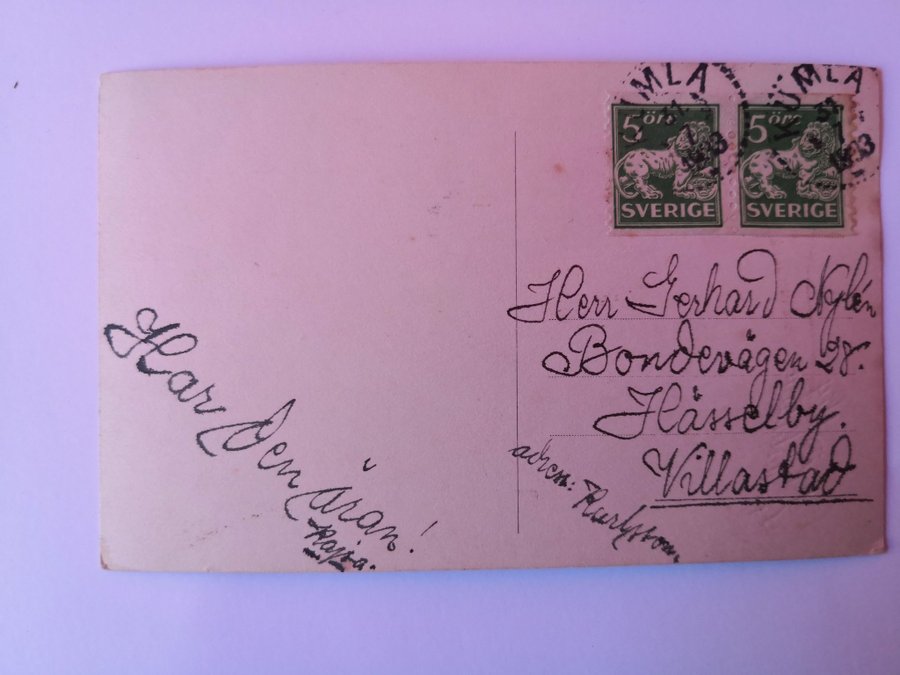 KUMLA
31
7
1933
KUMLA
31
7
1933
5 öre
SVERIGE
5 öre
SVERIGE
Herr Gerhard Nylén
Bondevägen 28.
Hässelby.
Villastad
adress: Karlsson.
Har den äran!
Kajsa.